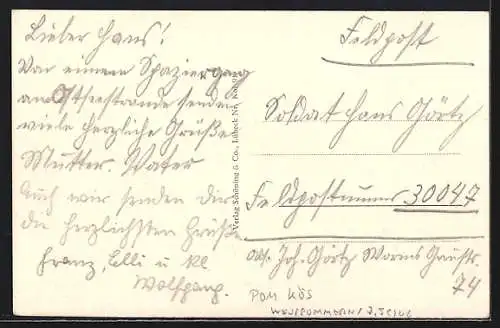 Lieber Hans!
Von einem Spaziergang
am Ostseestrande senden
viele herzliche Grüße
Mutter. Vater
Auch wir senden Dir
die herzlichsten Grüße
Franz, Elli u kl.
Wolfgang.
Verlag Schöning & Co., Lübeck
Feldpost
Soldat Hans Görtz
Feldpostnummer 30047
Abs. Joh. Görtz Worms Gaustr.
74
POM KÖS